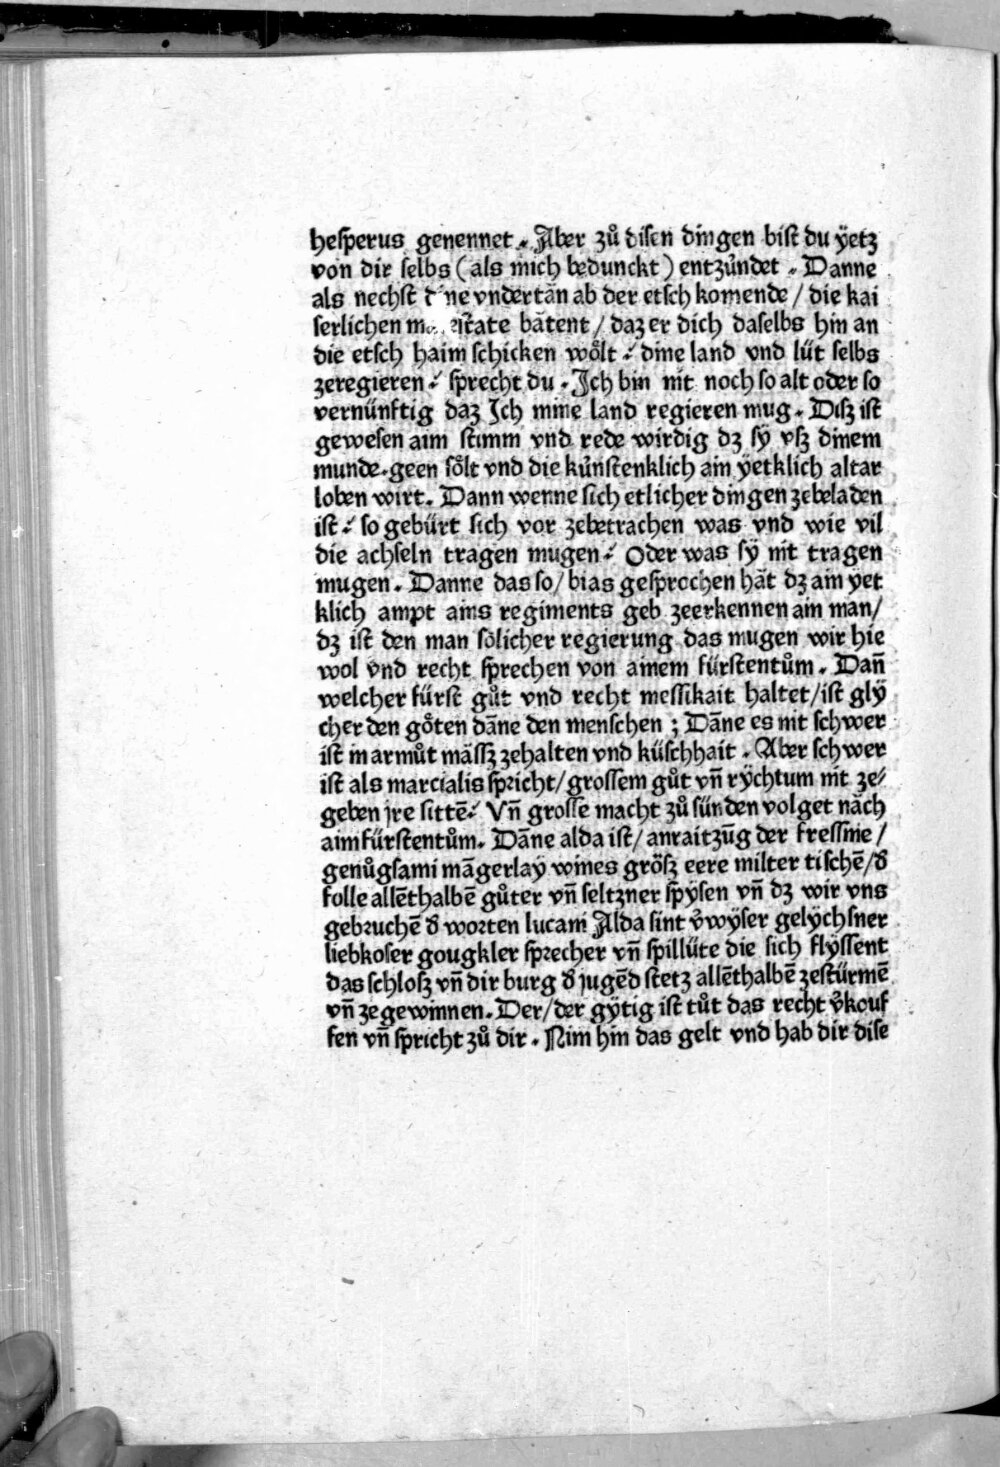 hesperus genennet . Aber zů disen dingen bist du ÿetz
von dir selbs (als mich bedunckt) entzu̇ndet . Danne
als nechst vndertān ab der etsch komende / die kai
serlichen bātent / daz er dich daselbs hin an
die etsch haim schicken wo̊lt / dine land vnd lüt selbs
zeregieren / sprecht du . Ich bin nit noch so alt oder so
vernünftig daz Ich mine land regieren mug . Disz ist
gewesen aim stimm vnd rede wirdig dz sÿ vsz dinem
munde . geen so̊lt vnd die ku̇nstenklich ain ÿetklich altar
loben wirt . Dann wenne sich etlicher dingen zebeladen
ist / so gebürt sich vor zebetrachen was vnd wie vil
die achseln tragen mugen / Oder was sÿ nit tragen
mugen . Danne das so / bias gesprochen hāt dz ain ÿet
klich ampt ains regiments geb zeerkennen ain man /
dz ist den man sölicher regierung das mugen wir hie
wol vnd recht sprechen von ainem fürstentům . Dañ
welcher fürst gůt vnd recht messikait haltet / ist glÿ
cher den go̊ten dāne den menschen ; Dāne es nit schwer
ist in armůt mässz zehalten vnd küschhait . Aber schwer
ist als marcialis spricht / grossem gůt vñ rÿchtum nit ze⸗
geben jre sittē / Vñ grosse macht zů sünden volget nāch
aim fürstentům . Dāne alda ist / anraitzūg der fressine /
genůgsami māgerlaÿ wines grösz eere milter tischē / d̕
folle allēthalbē gůter vñ seltzner spÿsen vñ dz wir vns
gebruchē d̕ worten lucani Alda sint v̕wÿser gelÿchsner
liebkoser gougkler sprecher vñ spillüte die sich flÿssent
das schlosz vñ dir burg d̕ jugēd stetz allēthalbē zestürmē
vñ zegewinnen . Der / der gÿtig ist tůt das recht v̕kouf
fen vñ spricht zů dir . Nim hin das gelt vnd hab dir dise